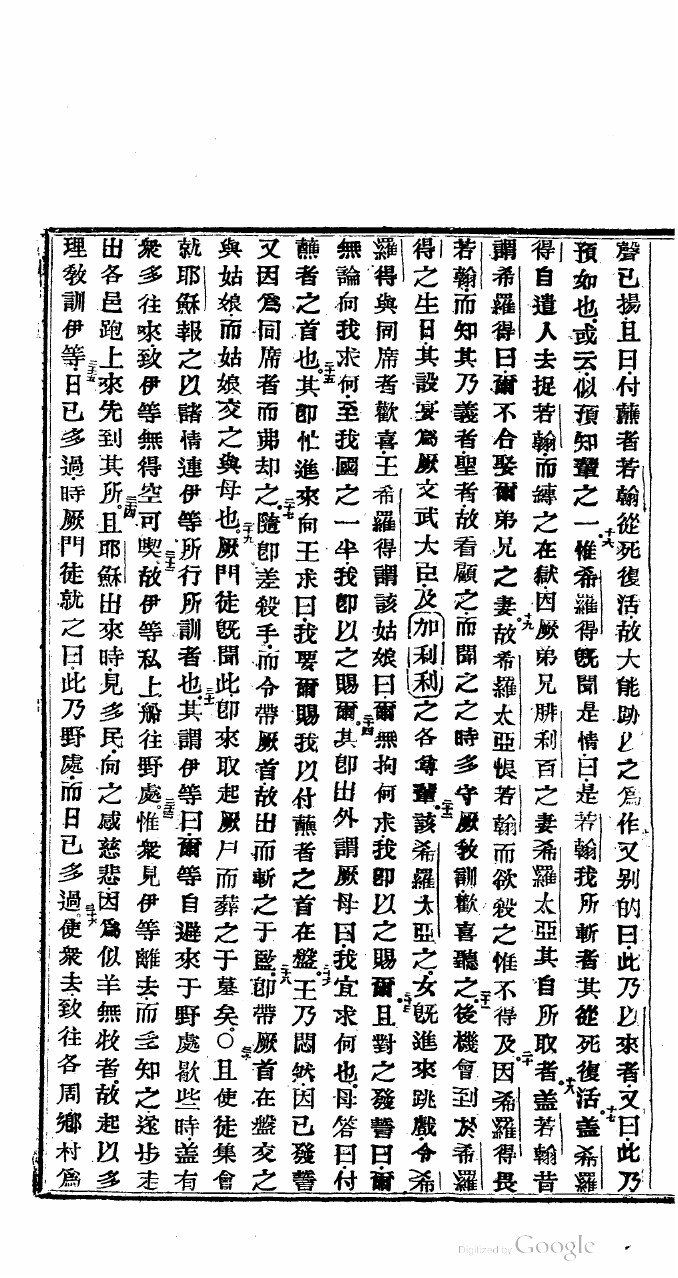 聲已揚且曰付蘸者若翰從死復活故大能跡以之爲作又别的曰此乃以來者又曰此乃
預如也或云似預知輩之一惟希羅得旣聞是情曰是若翰我所斬者其從死復活蓋希羅
得自遣人去捉若翰而縛之在獄因厥弟兄腓利百之妻希羅太亞其自所取者蓋若翰昔
謂希羅得曰爾不合娶爾弟兄之妻故希羅太亞恨若翰而欲殺之惟不得及因希羅得畏
若翰而知其乃義者聖者故看顧之而聞之之時多守厥教訓歡喜聽之後機會到於希羅
得之生日其設宴爲厥文武大臣及加利利之各尊輩該希羅太亞之女旣進來跳戲令希
羅得與同席者歡喜王希羅得謂該姑娘曰爾無拘何求我卽以之賜爾且對之發誓曰爾
無論向我求何至我國之一半我卽以之賜爾其卽出外謂厥母曰我宜求何也母答曰付
蘸者之首也其卽忙進來向王求曰我要爾賜我以付蘸者之首在盤王乃悶然因已發誓
又因爲同席者而弗却之隨卽差殺手而令帶厥首故出而斬之于監卽帶厥首在盤交之
與姑娘而姑娘交之與母也厥門徒旣聞此卽來取起厥尸而葬之于墓矣〇且使徒集會
就耶穌報之以諸情連伊等所行所訓者也其謂伊等曰爾等自避來于野處歇些時蓋有
衆多往來致伊等無得空可喫故伊等私上船往野處惟衆見伊等離去而多知之遂步走
出各邑跑上來先到其所且耶穌出來時見多民向之感慈悲因爲似羊無牧者故起以多
理教訓伊等日已多過時厥門徒就之曰此乃野處而日已多過使衆去致往各周鄉村爲
Digitized by Google